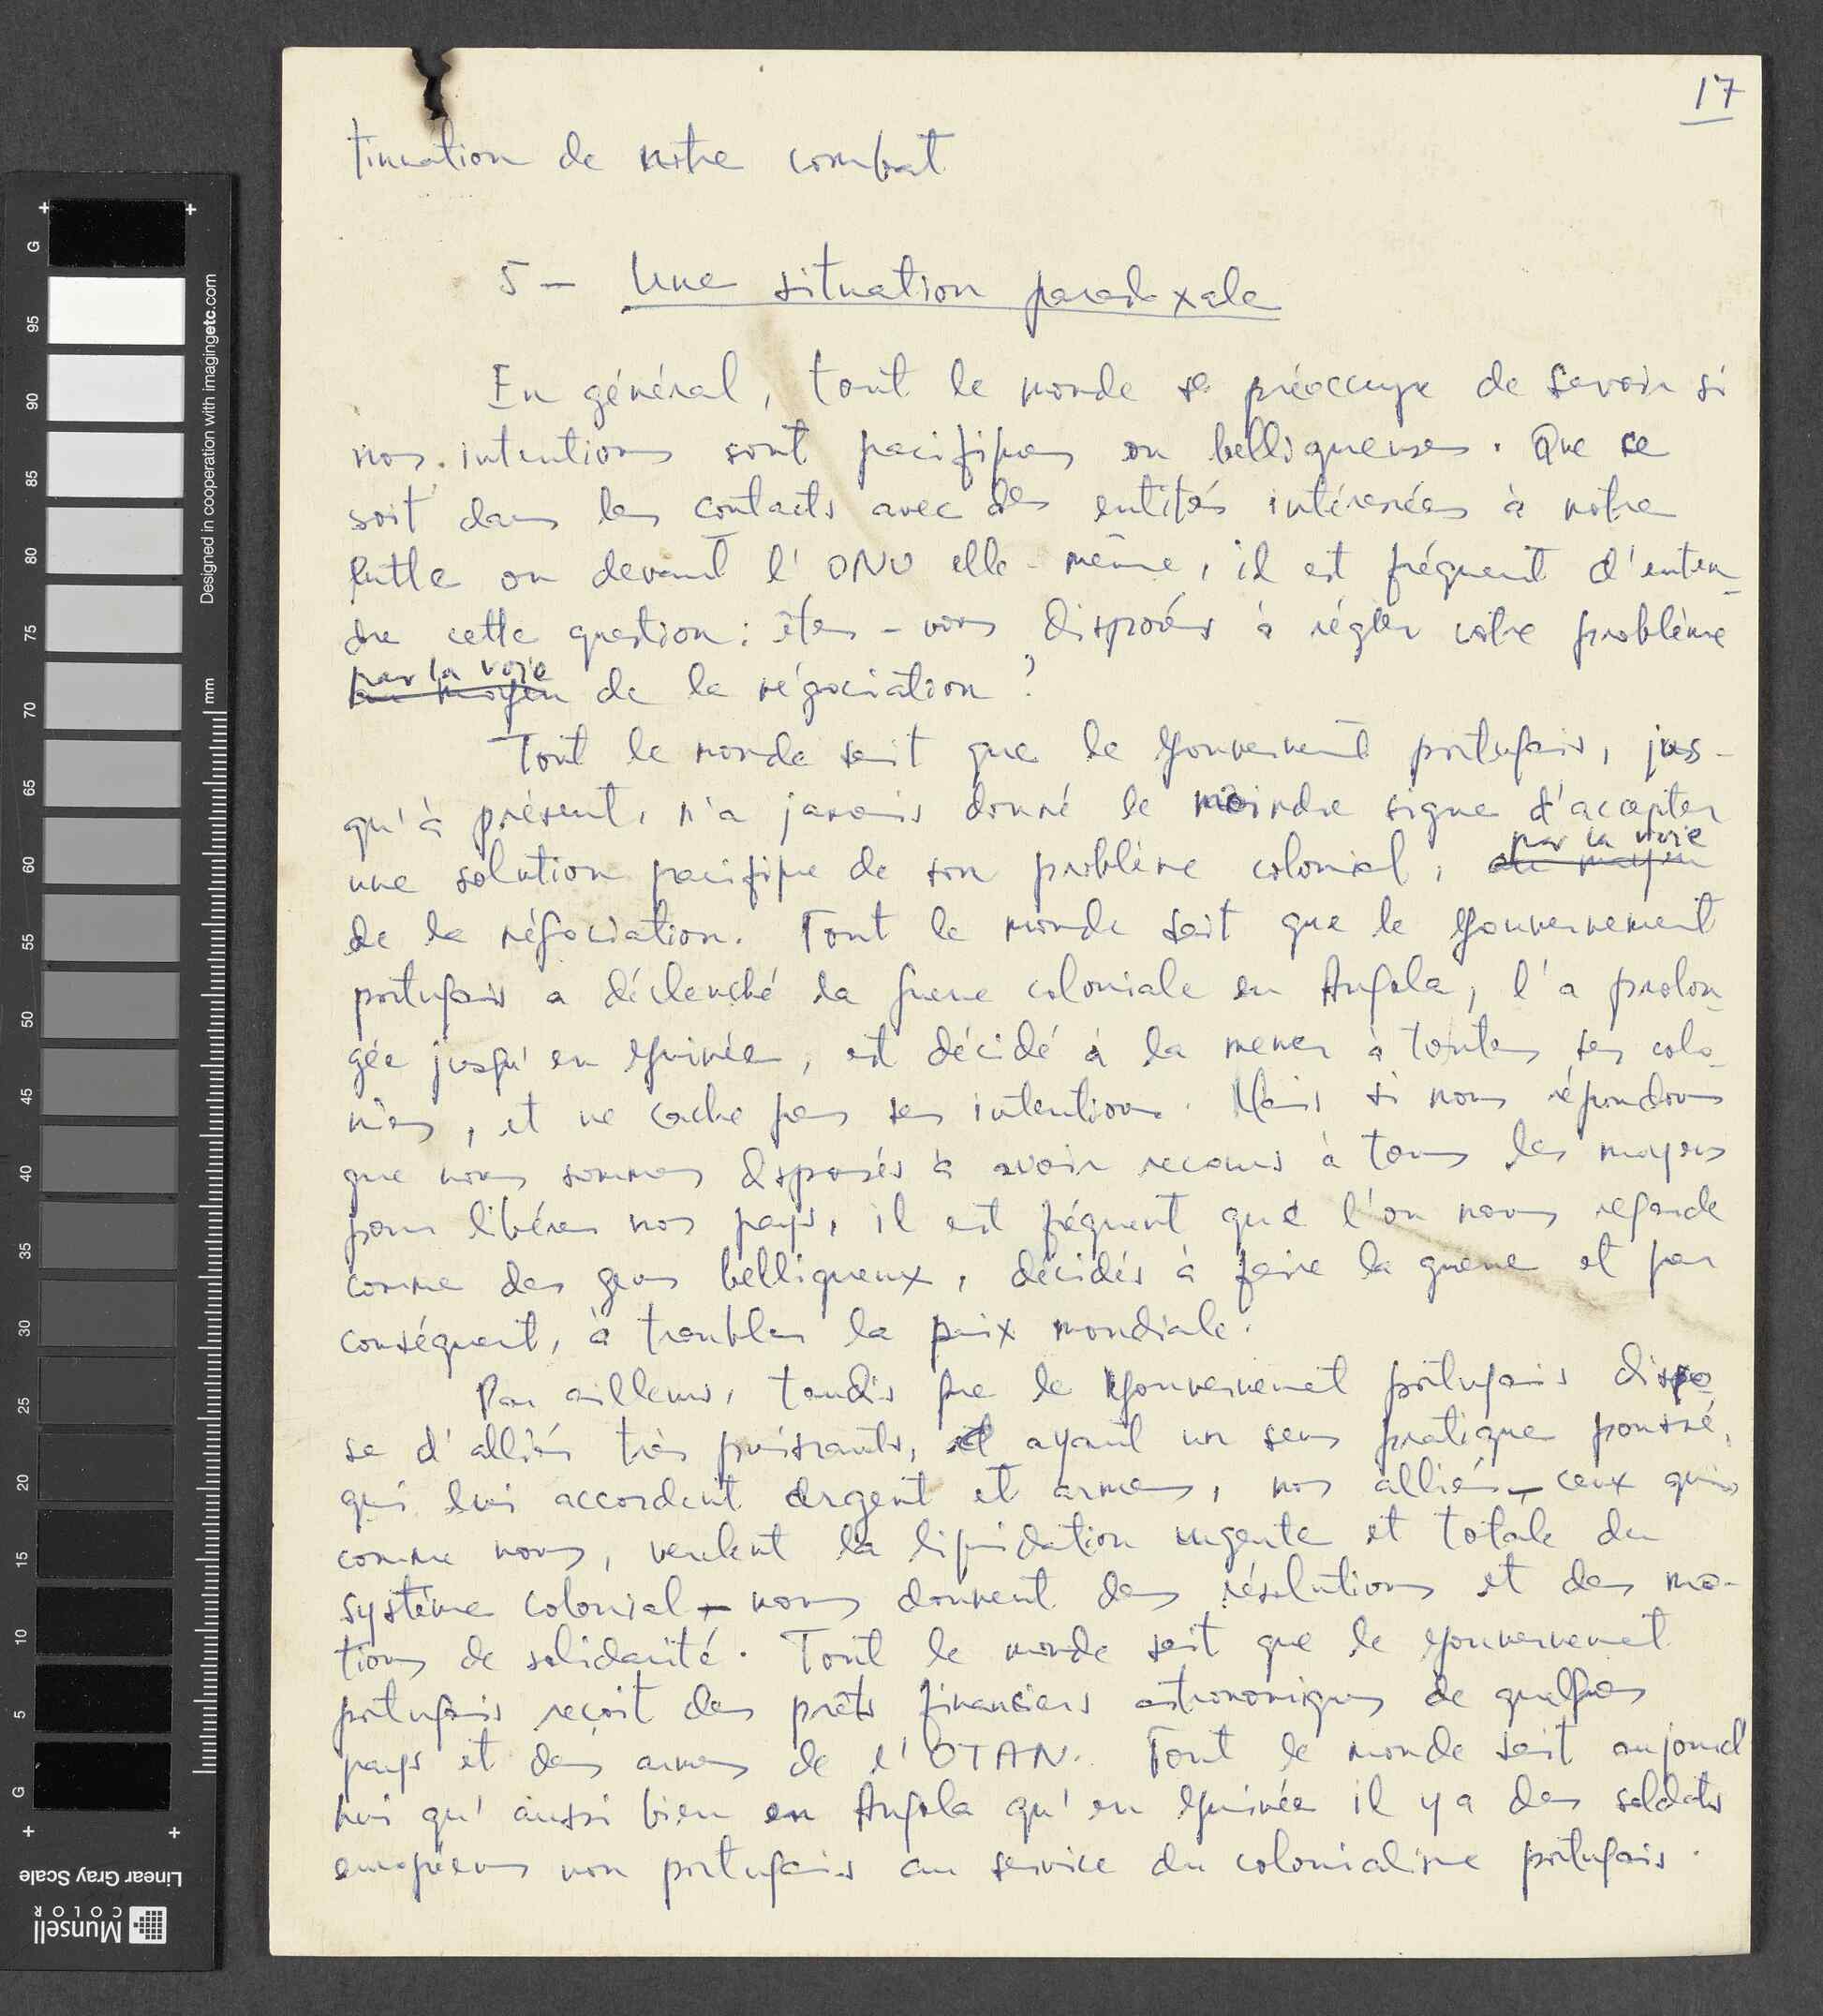 17
tinuation de notre combat
5 - Une situation paradoxale
En général, tout le monde se préoccupe de savoir si
nos intentions sont pacifiques ou belliqueuses. Que ce
soit dans les contacts avec des entités intéressées à notre
lutte ou devant l'ONU elle-même, il est fréquent d'enten-
dre cette question: êtes-vous disposés à régler votre problème
par la voie
au moyen de la négociation?
Tout le monde sait que le Gouvernement portugais, jus-
qu'à présent, n'a jamais donné le moindre signe d'accepter
par la voie
une solution pacifique de son problème colonial, au moyen
de la négociation. Tout le monde sait que le Gouvernement
portugais a déclenché la guerre coloniale en Angola, l'a prolon-
gée jusqu'en Guinée, est décidé à la mener à toutes ses colo-
nies, et ne cache pas ses intentions. Mais si nous répondons
que nous sommes disposés à avoir recours à tous les moyens
pour libérer nos pays, il est fréquent que l'on nous regarde
comme des gens belliqueux, décidés à faire la guerre et par
conséquent, à troubler la paix mondiale.
Par ailleurs, tandis que le Gouvernement portugais dispo-
se d'alliés très puissants, et ayant un sens pratique poussé,
qui lui accordent argent et armes, nos alliés - ceux qui,
comme nous, veulent la liquidation urgente et totale du
système colonial - nous donnent des résolutions et des mo-
tions de solidarité. Tout le monde sait que le Gouvernement
portugais reçoit des prêts financiers astronomiques de quelques
pays et des armes de l'OTAN. Tout le monde sait aujourd'
hui qu'aussi bien en Angola qu'en Guinée il y a des soldats
européens non portugais au service du colonialisme portugais.
G
95
90
85
80
75
70
65
60
55
50
45
40
35
30
25
20
15
10
5
G
mm
Designed in cooperation with imagingetc.com
Linear Gray Scale
Munsell
COLOR